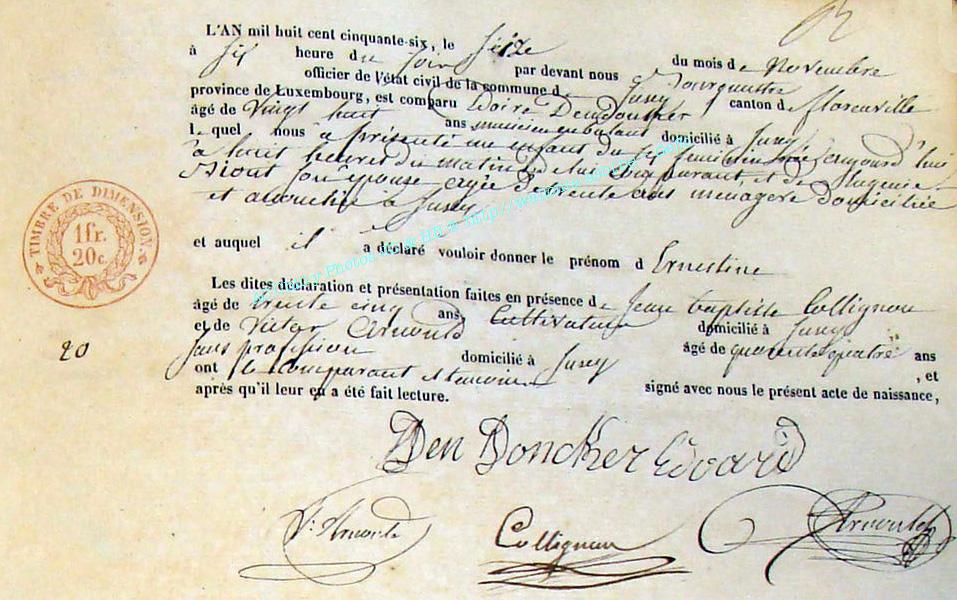 L'AN mil huit cent cinquante-six, le seize du mois de Novembre
à six heure du soir par devant nous
officier de l'état civil de la commune de Jusey canton de florenville
province de Luxembourg, est comparu Dendoncker
âgé de vingt huit ans, musicien ambulant domicilié à Jusey
lequel nous a présenté un enfant du féminin née aujourd'hui
à huit heures du matin de lui comparant et de Eugenie
son épouse agée de trente ans ménagère domiciliée
et à Jusey
et auquel il a déclaré vouloir donner le prénom d Ernestine
Les dites déclaration et présentation faites en présence de Jean baptiste Collignon
âgé de trente cinq ans, Cultivateur domicilié à Jusey
et de Victor Arnould âgé de quarante quatre ans
sans profession domicilié à Jusey , et
ont le comparant et témoins signé avec nous le présent acte de naissance,
après qu'il leur en a été fait lecture.
TIMBRE DE DIMENSION.
1 fr.
20 c.
20
Den Doncker Edoard
V. Arnould
Collignon